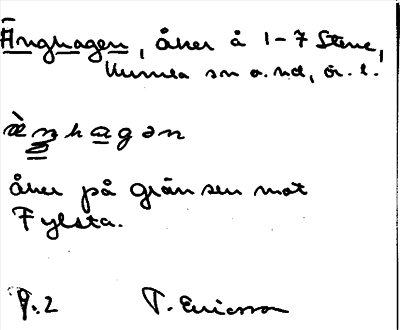 Änghagen, åker å 1-7 Stene,
Kumla sn o. hd, ör. l.
äŋhagən
åker på gränsen mot
Fylsta.
P.2 T. Ericsson